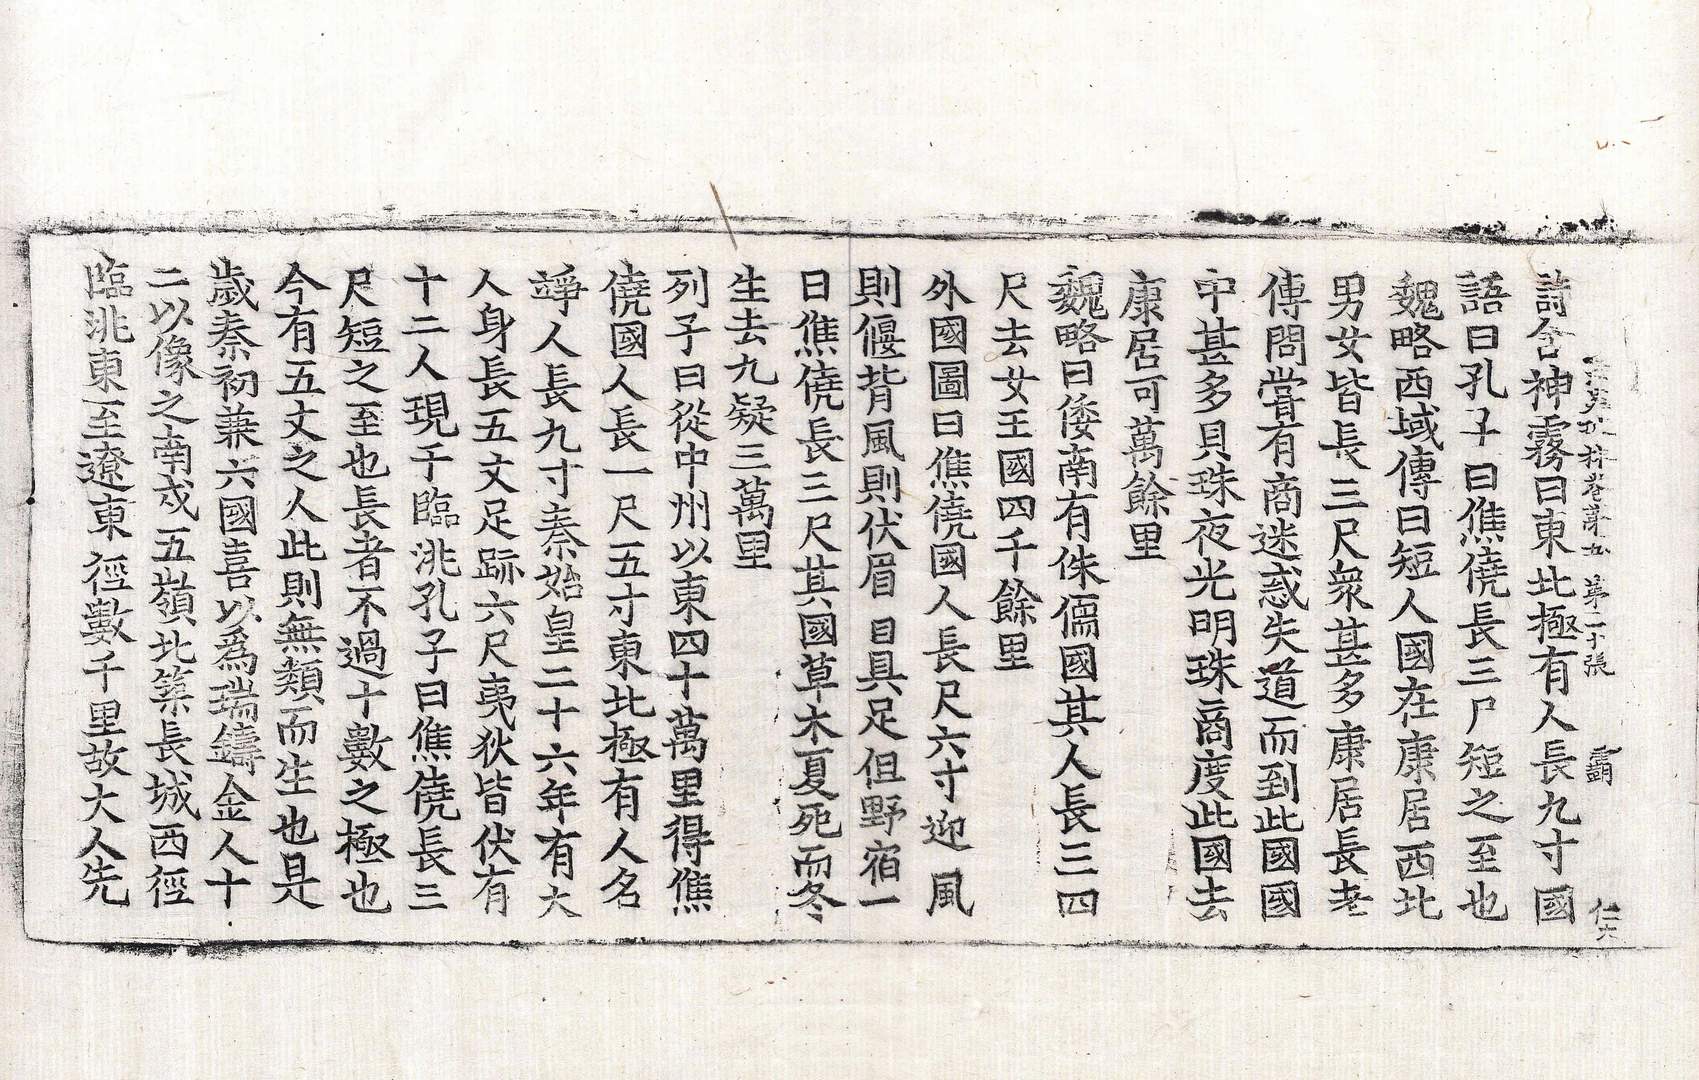 法苑珠林卷第五 第二十張 霸
詩含神霧曰東北極有人長九寸國
語曰孔子曰僬僥長三尸短之至也
魏略西域傳曰短人國在康居西北
男女皆長三尺衆甚多康居長老
傳問嘗有商迷惑失道而到此國國
中甚多貝珠夜光明珠商度此國去
康居可萬餘里
魏略曰倭南有侏儒國其人長三四
尺去女王國四千餘里
外國圖曰僬僥國人長尺六寸迎風
則偃背風則伏眉目具足但野宿一
曰僬僥長三尺其國草木夏死而冬
生去九疑三萬里
列子曰從中州以東四十萬里得僬
僥國人長一尺五寸東北極有人名
竫人長九寸秦始皇二十六年有大
人身長五丈足跡六尺夷狄皆伏有
十二人現于臨洮孔子曰僬僥長三
尺短之至也長者不過十數之極也
今有五丈之人此則無類而生也是
歲秦初兼六國喜以爲瑞鑄金人十
二以像之南戍五嶺北築長城西徑
臨洮東至遼東徑數千里故大人先